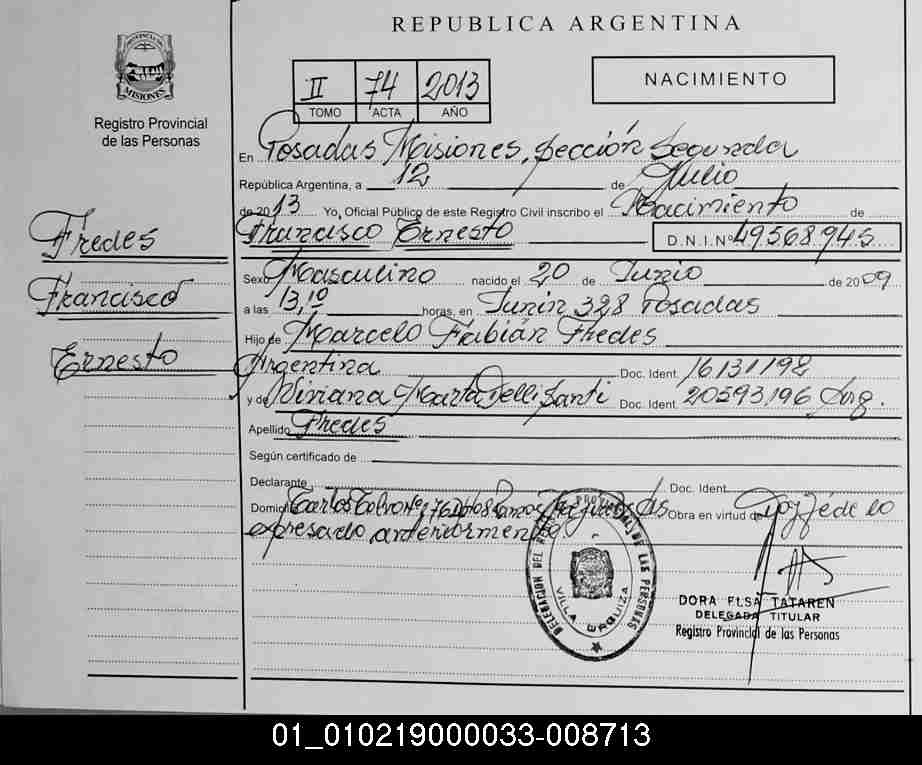 REPUBLICA ARGENTINA
PROVINCIA DE
MISIONES
Registro Provincial
de las Personas
II 74 2013
TOMO ACTA AÑO
NACIMIENTO
En Posadas Misiones, Sección Segunda
República Argentina, a 12 de Julio
de 2013 Yo, Oficial Público de este Registro Civil inscribo el Nacimiento de
Francisco Ernesto D.N.I.Nº 49568945
Fredes
Francisco
Ernesto
Sexo Masculino nacido el 20 de Junio de 2009
a las 13,10 horas, en Junin 328 Posadas
Hijo de Marcelo Fabián Fredes
Argentina Doc. Ident. 16131198
y de Viviana Marta Delli Santi Doc. Ident. 20593196 Arg.
Apellido Fredes
Según certificado de
Declarante Doc. Ident.
Domicilio Carlos Obra en virtud de
expresado anteriormente
DELEGACION DEL REGISTRO PROVINCIAL DE LAS PERSONAS
VILLA URQUIZA
DORA ELSA TATAREN
DELEGADA TITULAR
Registro Provincial de las Personas
01_010219000033-008713